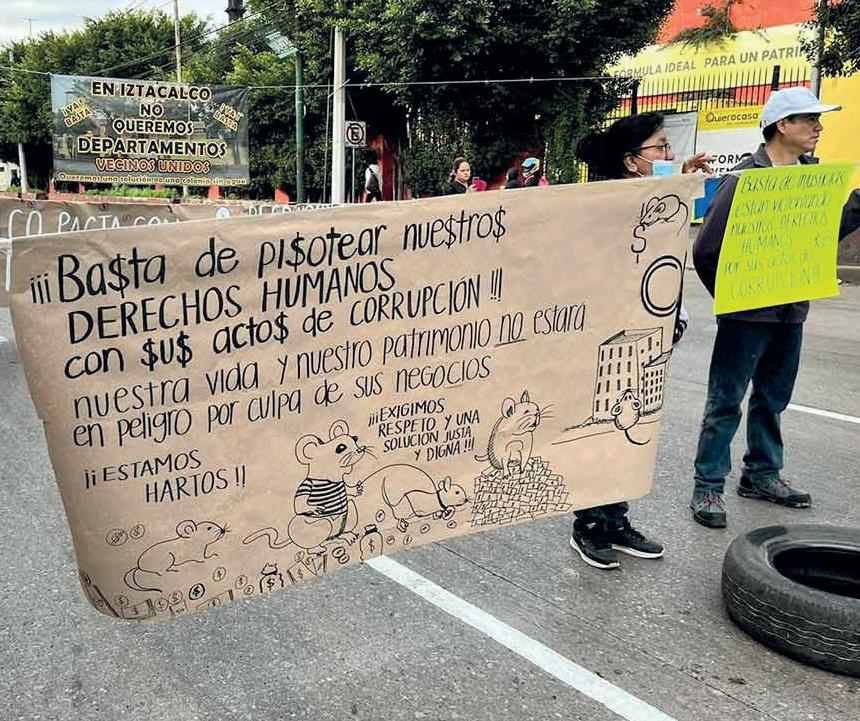 EN IZTACALCO
NO
QUEREMOS
DEPARTAMENTOS
VECINOS UNIDOS
Queremos una solución no una colonia sin agua
¡YA!
BASTA
¡YA!
BASTA
FORMULA IDEAL PARA UN PATRI
Quierocasa
FORM
CO PACTA CON
¡¡¡Ba$ta de pi$otear nue$tro$
DERECHOS HUMANOS
con $u$ acto$ de CORRUPCIÓN !!!
nuestra vida y nuestro patrimonio no estará
en peligro por culpa de sus negocios
¡¡¡EXIGIMOS
RESPETO Y UNA
SOLUCIÓN JUSTA
Y DIGNA!!!
¡¡ESTAMOS
HARTOS !!
Basta de injusticias
están violentando
nuestros DERECHOS
HUMANOS
por sus actos de
CORRUPCIÓN!!!